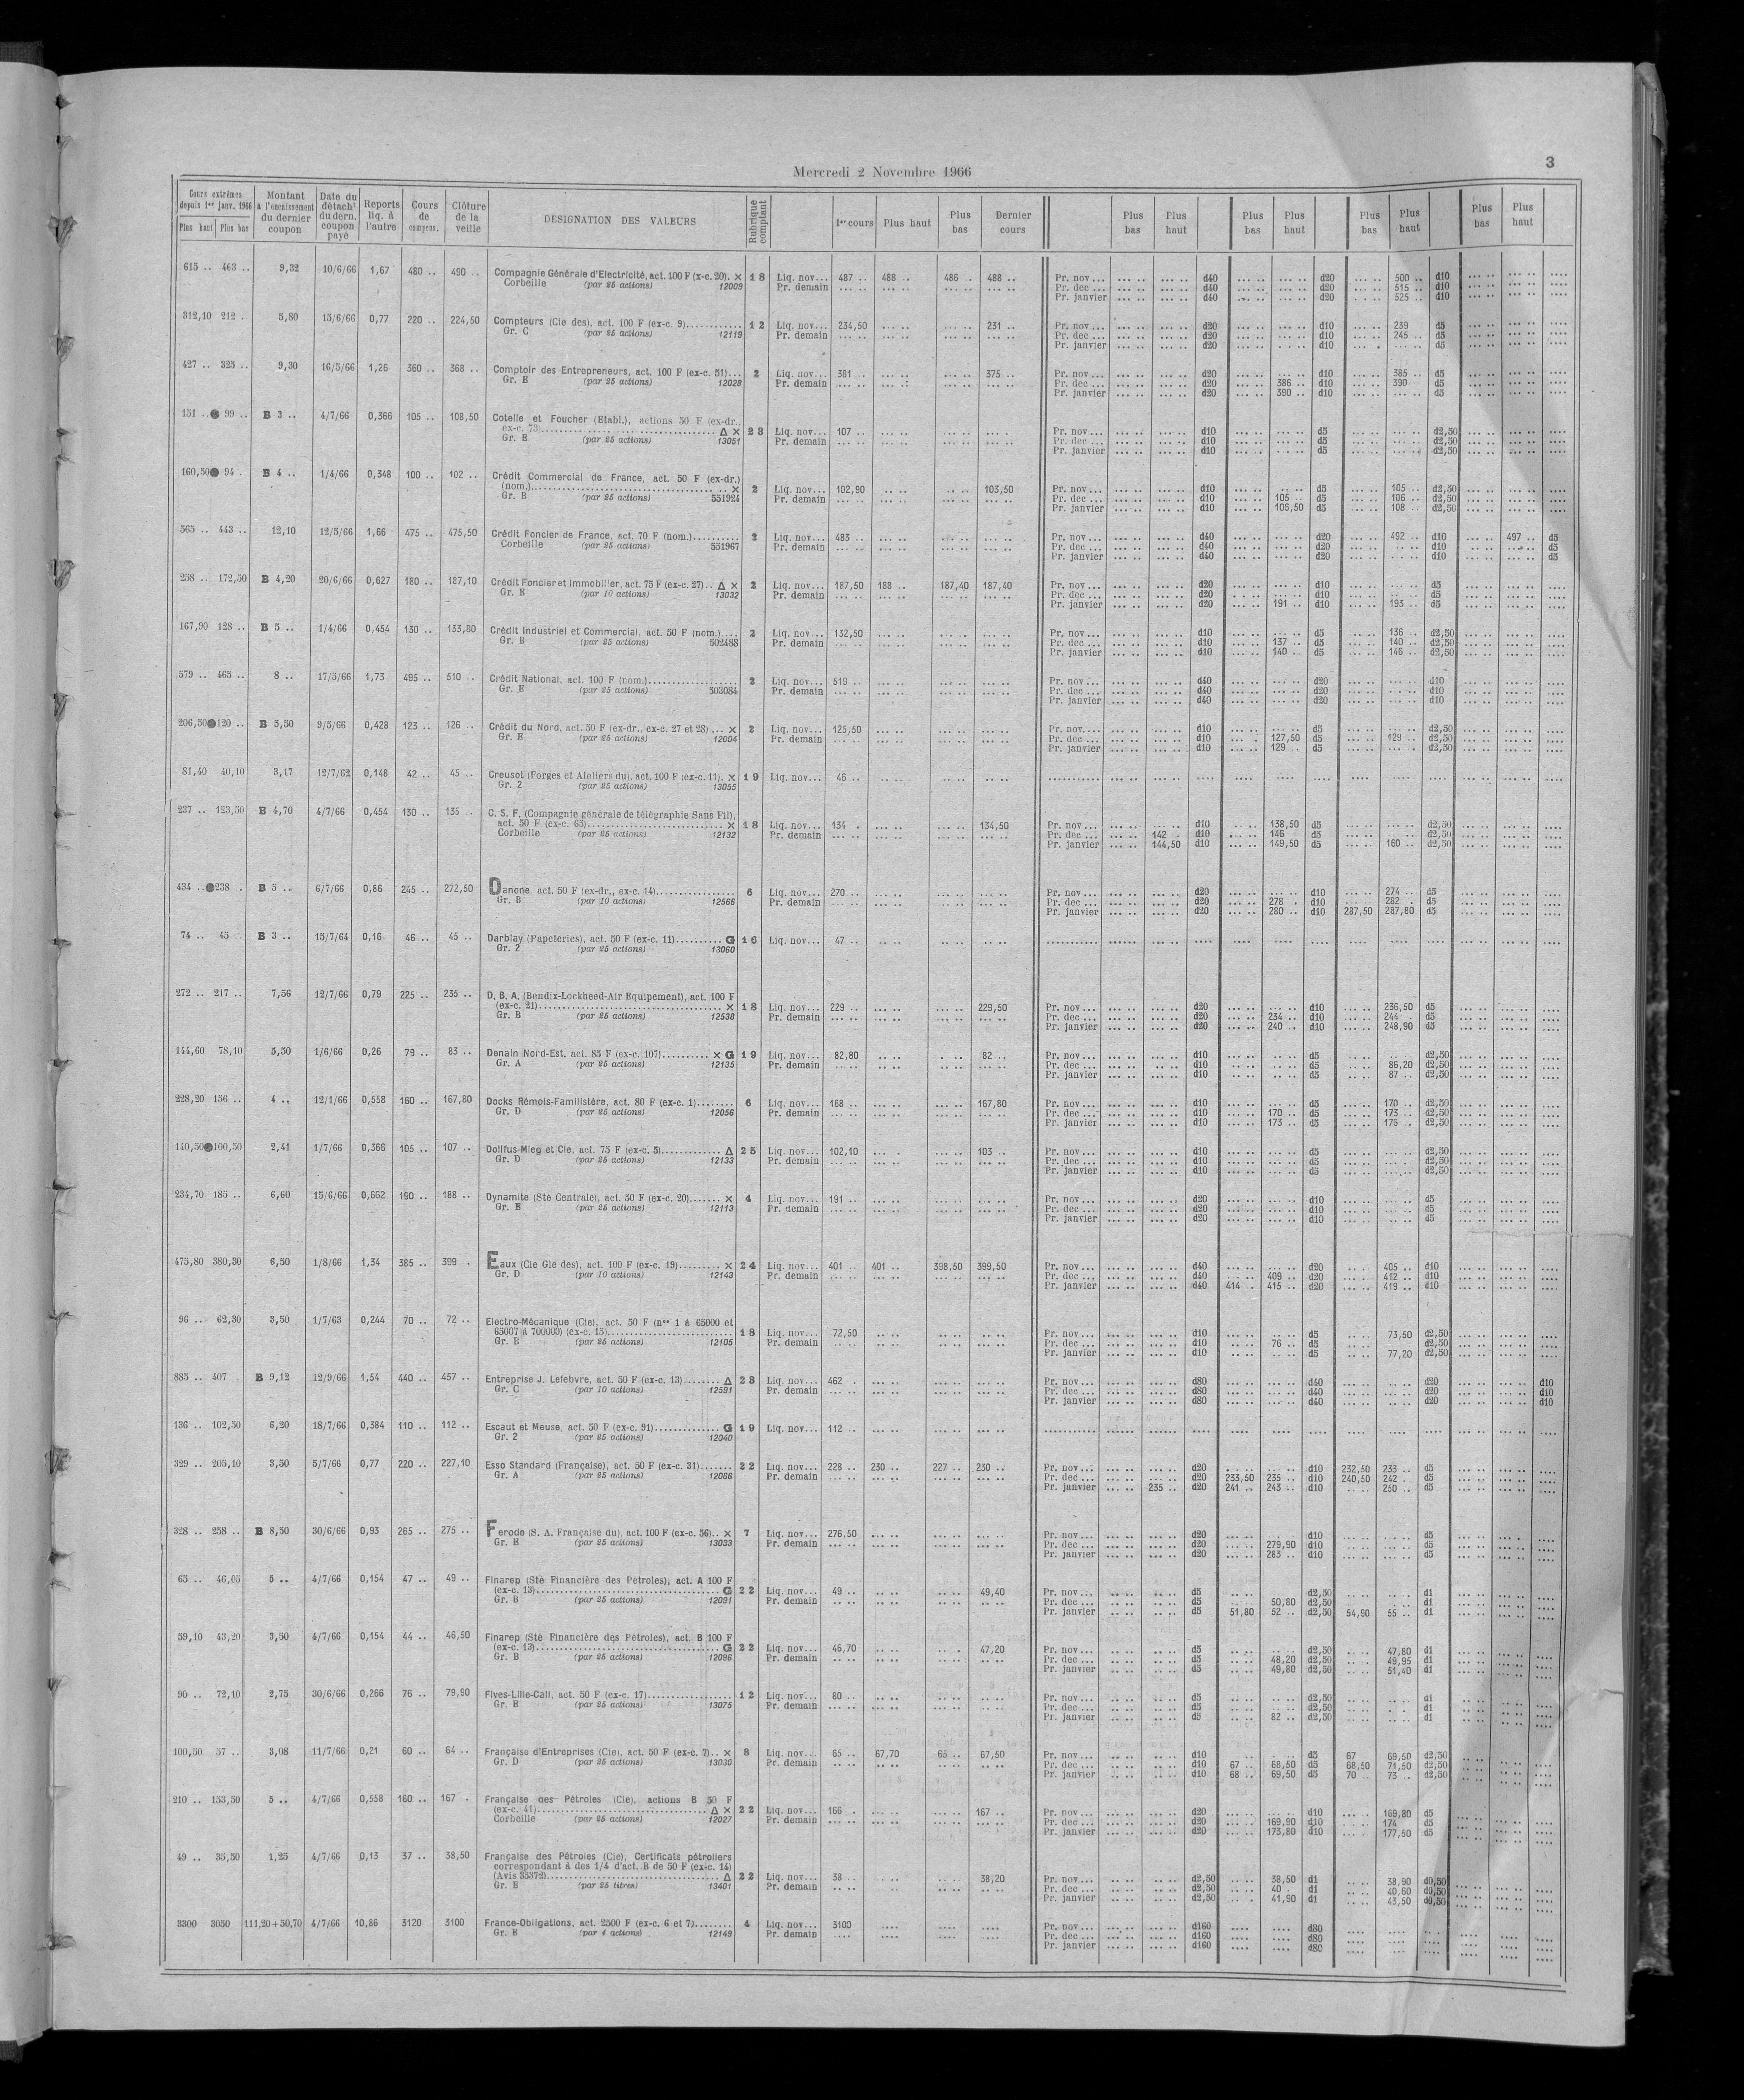 Mercredi 2 Novembre 1966
3
Cours extrêmes depuis 1er janv. 1966 Plus haut Plus bas Montant à l'encaissement du dernier coupon Date du détacht du dern. coupon payé Reports liq. à l'autre Cours de compens. Clôture de la veille DESIGNATION DES VALEURS Rubrique comptant 1er cours Plus haut Plus bas Dernier cours Plus bas Plus haut Plus bas Plus haut Plus bas Plus haut Plus bas Plus haut
615 .. 463 .. 9,32 10/6/66 1,67 480 .. 490 .. Compagnie Générale d'Electricité, act. 100 F (x-c. 20). × 18 Liq. nov... 487 .. 488 .. 486 .. 488 .. Pr. nov... d40 d20 500 .. d10
Corbeille (par 25 actions) 12009 Pr. demain Pr. dec ... d40 d20 515 .. d10
Pr. janvier d40 d20 525 .. d10
312,10 212 . 5,80 15/6/66 0,77 220 .. 224,50 Compteurs (Cie des), act. 100 F (ex-c. 9)............ 12 Liq. nov... 234,50 231 .. Pr. nov... d20 d10 239 d5
Gr. C (par 25 actions) 12119 Pr. demain Pr. dec ... d20 d10 245 .. d5
Pr. janvier d20 d10 d5
427 .. 325 .. 9,30 16/5/66 1,26 360 .. 368 .. Comptoir des Entrepreneurs, act. 100 F (ex-c. 51)... 2 Liq. nov... 381 .. 375 .. Pr. nov... d20 d10 385 .. d5
Gr. E (par 25 actions) 12028 Pr. demain Pr. dec ... d20 386 .. d10 390 d5
Pr. janvier d20 390 .. d10 d5
151 ..● 99 .. B 3 .. 4/7/66 0,366 105 .. 108,50 Cotelle et Foucher (Etabl.), actions 50 F (ex-dr.,
ex-c. 73)............ Δ × 28 Liq. nov... 107 .. Pr. nov... d10 d5 d2,50
Gr. B (par 25 actions) 13051 Pr. demain Pr. dec ... d10 d5 d2,50
Pr. janvier d10 d5 d2,50
160,50● 94 . B 4 .. 1/4/66 0,348 100 .. 102 .. Crédit Commercial de France, act. 50 F (ex-dr.)
(nom.)............ × 2 Liq. nov... 102,90 103,50 Pr. nov... d10 d5 105 .. d2,50
Gr. B (par 25 actions) 551924 Pr. demain Pr. dec ... d10 105 .. d5 106 .. d2,50
Pr. janvier d10 106,50 d5 108 .. d2,50
565 .. 443 .. 12,10 12/5/66 1,66 475 .. 475,50 Crédit Foncier de France, act. 70 F (nom.).......... 2 Liq. nov... 483 .. Pr. nov... d40 d20 492 .. d10 497 .. d5
Corbeille (par 25 actions) 551967 Pr. demain Pr. dec ... d40 d20 d10 d5
Pr. janvier d40 d20 d10 d5
258 .. 172,50 B 4,20 20/6/66 0,627 180 .. 187,10 Crédit Foncier et Immobilier, act. 75 F (ex-c. 27).. Δ × 2 Liq. nov... 187,50 188 .. 187,40 187,40 Pr. nov... d20 d10 d5
Gr. E (par 10 actions) 13032 Pr. demain Pr. dec ... d20 d10 d5
Pr. janvier d20 191 .. d10 193 .. d5
167,90 128 .. B 5 .. 1/4/66 0,454 130 .. 133,80 Crédit Industriel et Commercial, act. 50 F (nom.).... 2 Liq. nov... 132,50 Pr. nov... d10 d5 136 .. d2,50
Gr. B (par 25 actions) 502488 Pr. demain Pr. dec ... d10 137 .. d5 140 .. d2,50
Pr. janvier d10 140 .. d5 146 .. d2,50
579 .. 465 .. 8 .. 17/5/66 1,73 495 .. 510 .. Crédit National, act. 100 F (nom.).................. 2 Liq. nov... 519 .. Pr. nov... d40 d20 d10
Gr. E (par 25 actions) 503084 Pr. demain Pr. dec ... d40 d20 d10
Pr. janvier d40 d20 d10
206,50●120 .. B 5,50 9/5/66 0,428 123 .. 126 .. Crédit du Nord, act. 50 F (ex-dr., ex-c. 27 et 28)... × 2 Liq. nov... 125,50 Pr. nov... d10 d5 d2,50
Gr. E (par 25 actions) 12004 Pr. demain Pr. dec ... d10 127,50 d5 129 .. d2,50
Pr. janvier d10 129 .. d5 d2,50
81,40 40,10 3,17 12/7/62 0,148 42 .. 45 .. Creusot (Forges et Ateliers du), act. 100 F (ex-c. 11). × 19 Liq. nov... 46 ..
Gr. 2 (par 25 actions) 13055
237 .. 123,50 B 4,70 4/7/66 0,454 130 .. 135 .. C. S. F. (Compagnie générale de télégraphie Sans Fil),
act. 50 F (ex-c. 63)............ × 18 Liq. nov... 134 . 134,50 Pr. nov... d10 138,50 d5 d2,50
Corbeille (par 25 actions) 12132 Pr. demain Pr. dec ... 142 d10 146 d5 d2,50
Pr. janvier 144,50 d10 149,50 d5 160 .. d2,50
434 ..●238 . B 5 .. 6/7/66 0,86 245 .. 272,50 Danone, act. 50 F (ex-dr., ex-c. 14)................ 6 Liq. nov... 270 .. Pr. nov... d20 d10 274 .. d5
Gr. B (par 10 actions) 12566 Pr. demain Pr. dec ... d20 278 . d10 282 . d5
Pr. janvier d20 280 .. d10 287,50 287,80 d5
74 .. 45 .. B 3 .. 15/7/64 0,16 46 .. 45 .. Darblay (Papeteries), act. 50 F (ex-c. 11).......... G 16 Liq. nov... 47 ..
Gr. 2 (par 25 actions) 13060
272 .. 217 .. 7,56 12/7/66 0,79 225 .. 235 .. D. B. A. (Bendix-Lockheed-Air Equipement), act. 100 F
(ex-c. 21)............ × 18 Liq. nov... 229 .. 229,50 Pr. nov... d20 d10 236,50 d5
Gr. B (par 25 actions) 12538 Pr. demain Pr. dec ... d20 234 .. d10 244 .. d5
Pr. janvier d20 240 .. d10 248,90 d5
144,60 78,10 5,50 1/6/66 0,26 79 .. 83 .. Denain Nord-Est, act. 85 F (ex-c. 107).......... × G 19 Liq. nov... 82,80 82 .. Pr. nov... d10 d5 d2,50
Gr. A (par 25 actions) 12135 Pr. demain Pr. dec ... d10 d5 86,20 d2,50
Pr. janvier d10 d5 87 .. d2,50
228,20 156 .. 4 .. 12/1/66 0,558 160 .. 167,80 Docks Rémois-Familistère, act. 80 F (ex-c. 1)........ 6 Liq. nov... 168 .. 167,80 Pr. nov... d10 d5 170 .. d2,50
Gr. D (par 25 actions) 12056 Pr. demain Pr. dec ... d10 170 .. d5 173 .. d2,50
Pr. janvier d10 173 .. d5 176 .. d2,50
140,50●100,50 2,41 1/7/66 0,366 105 .. 107 .. Dollfus-Mieg et Cie, act. 75 F (ex-c. 5)............ Δ 25 Liq. nov... 102,10 103 .. Pr. nov... d10 d5 d2,50
Gr. D (par 25 actions) 12133 Pr. demain Pr. dec ... d10 d5 d2,50
Pr. janvier d10 d5 d2,50
234,70 185 .. 6,60 15/6/66 0,662 190 .. 188 .. Dynamite (Sté Centrale), act. 50 F (ex-c. 20)....... × 4 Liq. nov... 191 .. Pr. nov... d20 d10 d5
Gr. E (par 25 actions) 12113 Pr. demain Pr. dec ... d20 d10 d5
Pr. janvier d20 d10 d5
475,80 380,30 6,50 1/8/66 1,34 385 .. 399 . Eaux (Cie Gle des), act. 100 F (ex-c. 19)......... × 24 Liq. nov... 401 .. 401 .. 398,50 399,50 Pr. nov... d40 d20 405 .. d10
Gr. D (par 10 actions) 12143 Pr. demain Pr. dec ... d40 409 .. d20 412 .. d10
Pr. janvier d40 414 .. 415 .. d20 419 .. d10
96 .. 62,30 3,50 1/7/63 0,244 70 .. 72 .. Electro-Mécanique (Cie), act. 50 F (nos 1 à 65000 et
65007 à 700000) (ex-c. 15)............ 18 Liq. nov... 72,50 Pr. nov... d10 d5 73,50 d2,50
Gr. E (par 25 actions) 12105 Pr. demain Pr. dec ... d10 76 .. d5 d2,50
Pr. janvier d10 d5 77,20 d2,50
885 .. 407 . B 9,12 12/9/66 1,54 440 .. 457 .. Entreprise J. Lefebvre, act. 50 F (ex-c. 13)........ Δ 28 Liq. nov... 462 . Pr. nov... d80 d40 d20 d10
Gr. C (par 10 actions) 12591 Pr. demain Pr. dec ... d80 d40 d20 d10
Pr. janvier d80 d40 d20 d10
136 .. 102,50 6,20 18/7/66 0,384 110 .. 112 .. Escaut et Meuse, act. 50 F (ex-c. 91).............. G 19 Liq. nov... 112 ..
Gr. 2 (par 25 actions) 12040
329 .. 205,10 3,50 5/7/66 0,77 220 .. 227,10 Esso Standard (Française), act. 50 F (ex-c. 31)....... 22 Liq. nov... 228 .. 230 .. 227 .. 230 .. Pr. nov... d20 d10 232,50 233 .. d5
Gr. A (par 25 actions) 12066 Pr. demain Pr. dec ... d20 233,50 235 .. d10 240,50 242 . d5
Pr. janvier 235 .. d20 241 .. 243 .. d10 250 .. d5
328 .. 258 .. B 8,50 30/6/66 0,93 265 .. 275 .. Ferodo (S. A. Française du), act. 100 F (ex-c. 56).. × 7 Liq. nov... 276,50 Pr. nov... d20 d10 d5
Gr. B (par 25 actions) 13033 Pr. demain Pr. dec ... d20 279,90 d10 d5
Pr. janvier d20 283 .. d10 d5
65 .. 46,05 5 .. 4/7/66 0,154 47 .. 49 .. Finarep (Sté Financière des Pétroles), act. A 100 F
(ex-c. 13)............ G 22 Liq. nov... 49 .. 49,40 Pr. nov... d5 d2,50 d1
Gr. B (par 25 actions) 12091 Pr. demain Pr. dec ... d5 50,80 d2,50 d1
Pr. janvier d5 51,80 52 .. d2,50 54,90 55 .. d1
59,10 43,20 3,50 4/7/66 0,154 44 .. 46,50 Finarep (Sté Financière des Pétroles), act. B 100 F
(ex-c. 13)............ G 22 Liq. nov... 46,70 47,20 Pr. nov... d5 d2,50 47,80 d1
Gr. B (par 25 actions) 12096 Pr. demain Pr. dec ... d5 48,20 d2,50 49,95 d1
Pr. janvier d5 49,80 d2,50 51,40 d1
90 .. 72,10 2,75 30/6/66 0,266 76 .. 79,90 Fives-Lille-Cail, act. 50 F (ex-c. 17).................. 12 Liq. nov... 80 .. Pr. nov... d5 d2,50 d1
Gr. E (par 25 actions) 13075 Pr. demain Pr. dec ... d5 d2,50 d1
Pr. janvier d5 82 .. d2,50 d1
100,50 57 .. 3,08 11/7/66 0,21 60 .. 64 .. Française d'Entreprises (Cie), act. 50 F (ex-c. 7).. × 8 Liq. nov... 65 .. 67,70 65 .. 67,50 Pr. nov... d10 d5 67 69,50 d2,50
Gr. D (par 25 actions) 13030 Pr. demain Pr. dec ... d10 67 .. 68,50 d5 68,50 71,50 d2,50
Pr. janvier d10 68 .. 69,50 d5 70 .. 73 .. d2,50
210 .. 153,50 5 .. 4/7/66 0,558 160 .. 167 . Française des Pétroles (Cie), actions B 50 F
(ex-c. 41)............ Δ × 22 Liq. nov... 166 . 167 .. Pr. nov... d20 d10 169,80 d5
Corbeille (par 25 actions) 12027 Pr. demain Pr. dec ... d20 169,90 d10 174 d5
Pr. janvier d20 173,80 d10 177,50 d5
49 .. 35,50 1,25 4/7/66 0,13 37 .. 38,50 Française des Pétroles (Cie), Certificats pétroliers
correspondant à des 1/4 d'act. B de 50 F (ex-c. 14)
(Avis 35372)............ Δ 22 Liq. nov... 38 .. 38,20 Pr. nov... d2,50 38,50 d1 38,90 d0,50
Gr. B (par 25 titres) 13401 Pr. demain Pr. dec ... d2,50 40 . d1 40,60 d0,50
Pr. janvier d2,50 41,90 d1 43,50 d0,50
3300 3050 111,20+50,70 4/7/66 10,86 3120 3100 France-Obligations, act. 2500 F (ex-c. 6 et 7)........ 4 Liq. nov... 3100 Pr. nov... d160 d80
Gr. E (par 4 actions) 12149 Pr. demain Pr. dec ... d160 d80
Pr. janvier d160 d80